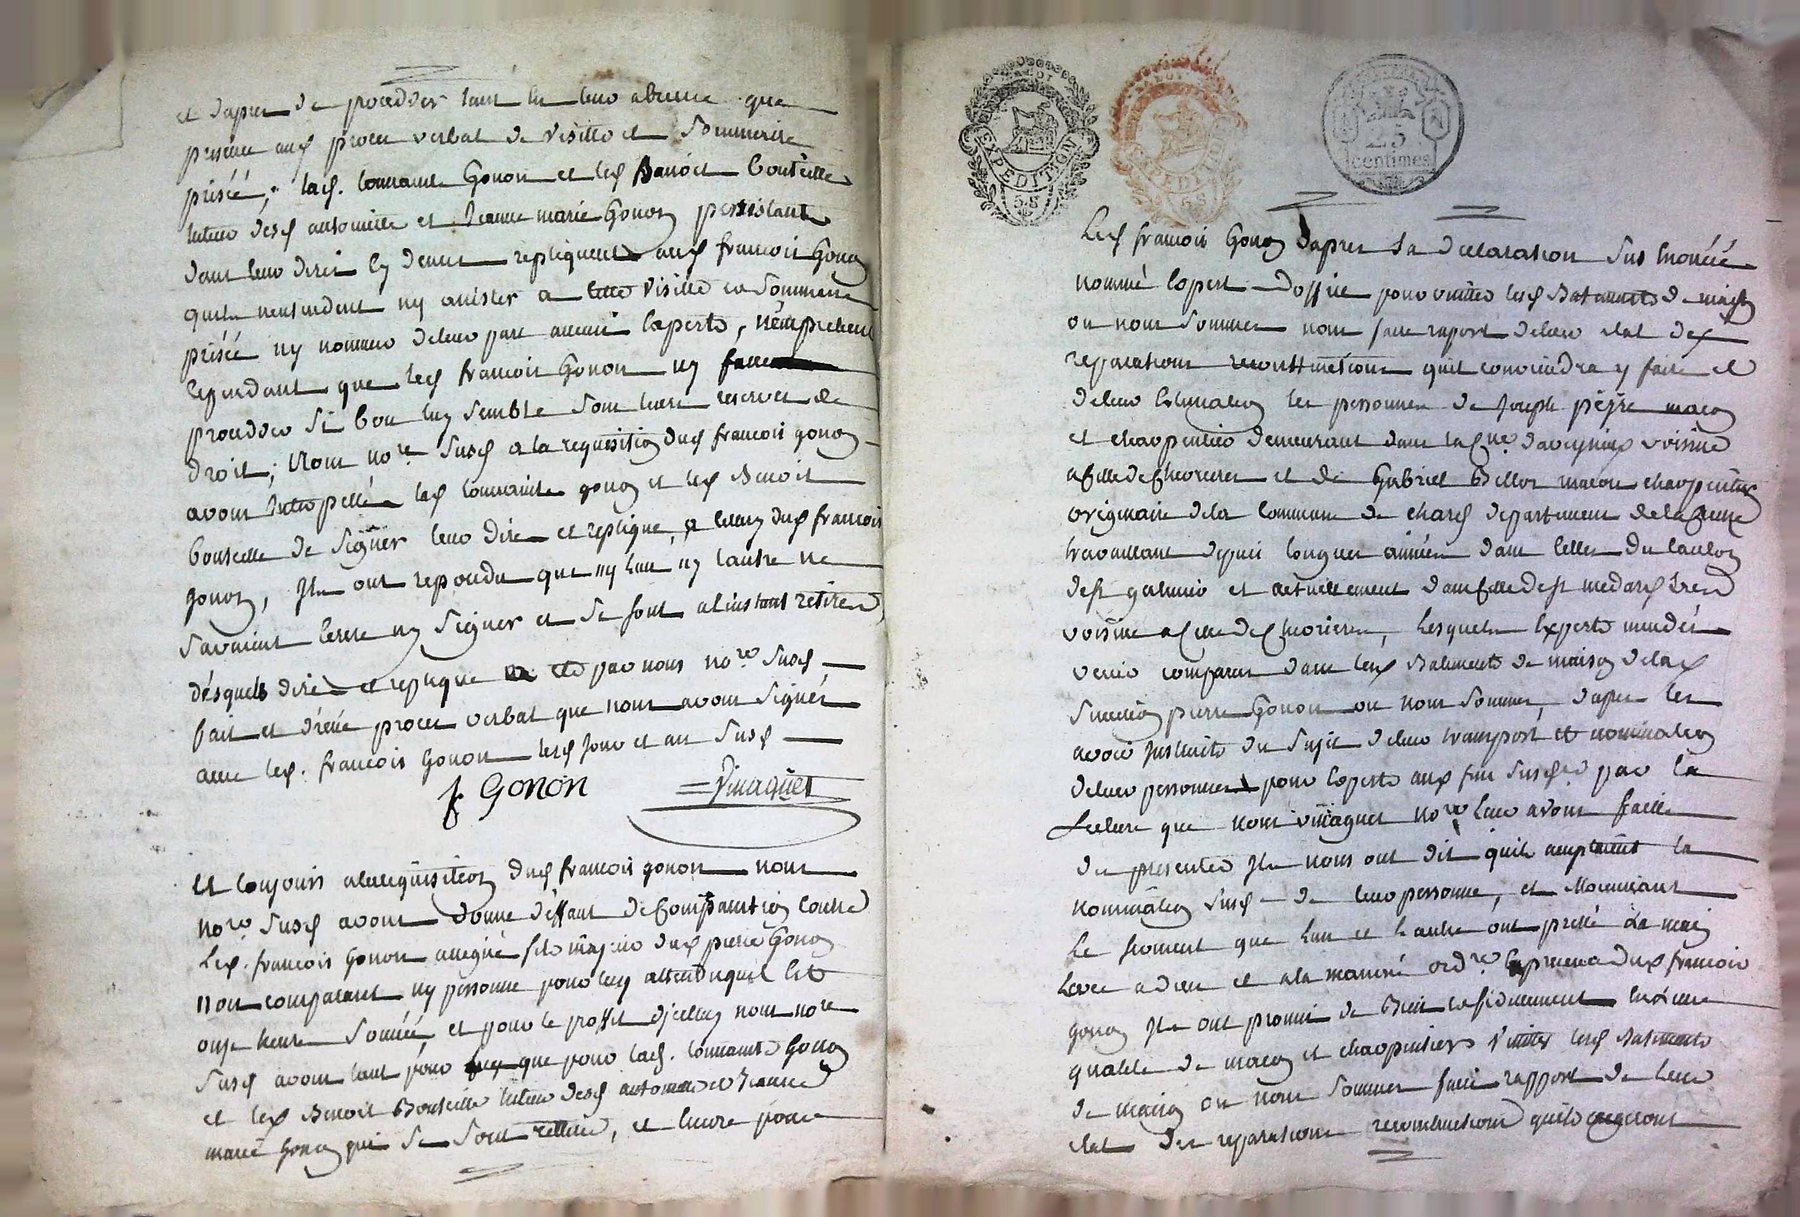 et d'apres de proceder tant en leur absence que
presence aux proces verbal de visitte et sommaire
prisée; lad. Gonon et led Benoit Bouteille
tuteur desd antoinette et Jeanne marie Gonon persistant
dans leur dire y denet repliquent aud francois Gonon
quils nentendent ny assister a cette visitte et sommaire
prisée ny nommer de leur part aucun experts, n'empechent
cependant que led francois Gonon ny fasse
proceder si bon luy semble sous leurs reserves de
droit; Nous no.re susd a la requisition dud francois gonon
avons interpellé lad gonon et led Benoit
bouteille de signer leur dire et replique, a celuy dud francois
gonon, Ils ont repondu que ny l'un ny l'autre ne
savaient ecrire ny signer et se sont a l'instant retirés
desquels dire et replique a eté par nous no.re susd
fait et dressé proces verbal que nous avons signés
avec led. francois Gonon lesd jour et an susd
f Gonon
Et toujours a la requisition dud francois gonon nous
no.re susd avons donné déffaut de Comparution contre
Led. francois Gonon fils majeur dud pierre Gonon
non comparant ny personne pour luy attendu quil est
onze heure sonnée, et pour le proffit dicelluy nous no.re
susd avons tant pour que pour lad. Gonon
et led Benoit Bouteille tuteur desd antoinette et Jeanne
marie Gonon qui se sont retirée, et encore pour
EXPEDITION
5.S
EXPEDITION
5.S
25
centimes
Led francois Gonon d'apres sa declaration sus enoncée
nommé expert d'office pour visitter lesd Batiments de maison
ou nous sommes nous faire raport de leur etat des
reparations reconstructions quil conviendra y faire et
de leur estimation les personnes de Joseph maçon
et charpentier demeurant dans la voisine
et de Gabriel Billot macon charpentier
originaire de la commune de chard departement de la Creuse
travaillant depuis longues années dans celle du canton
de st galmier et actuellement dans celle de st medard
voisine a celle de Chevrieres, Lesquels Experts mandés
venir comparoir dans lesd Batiments de maison de lad
succession pierre Gonon ou nous sommes, d'apres les
avoir instruits du sujet de leur transport et nomination
de leur personnes pour experts aux fins susd par la
Lecture que nous no.re leur avons faitte
des presentes Ils nous ont dit quils acceptaient la
nomination susd de leur personne, et Moyennant
Le serment que l'un et l'autre ont preté la main
Levée a dieu et a la maniere ord.re en presence dud francois
gonon Ils ont promis de Bien et fidelement en leur
qualité de macon et charpentiers visitter lesd Batiments
de maison ou nous sommes faire rapport de leur
etat des reparations reconstructions quils